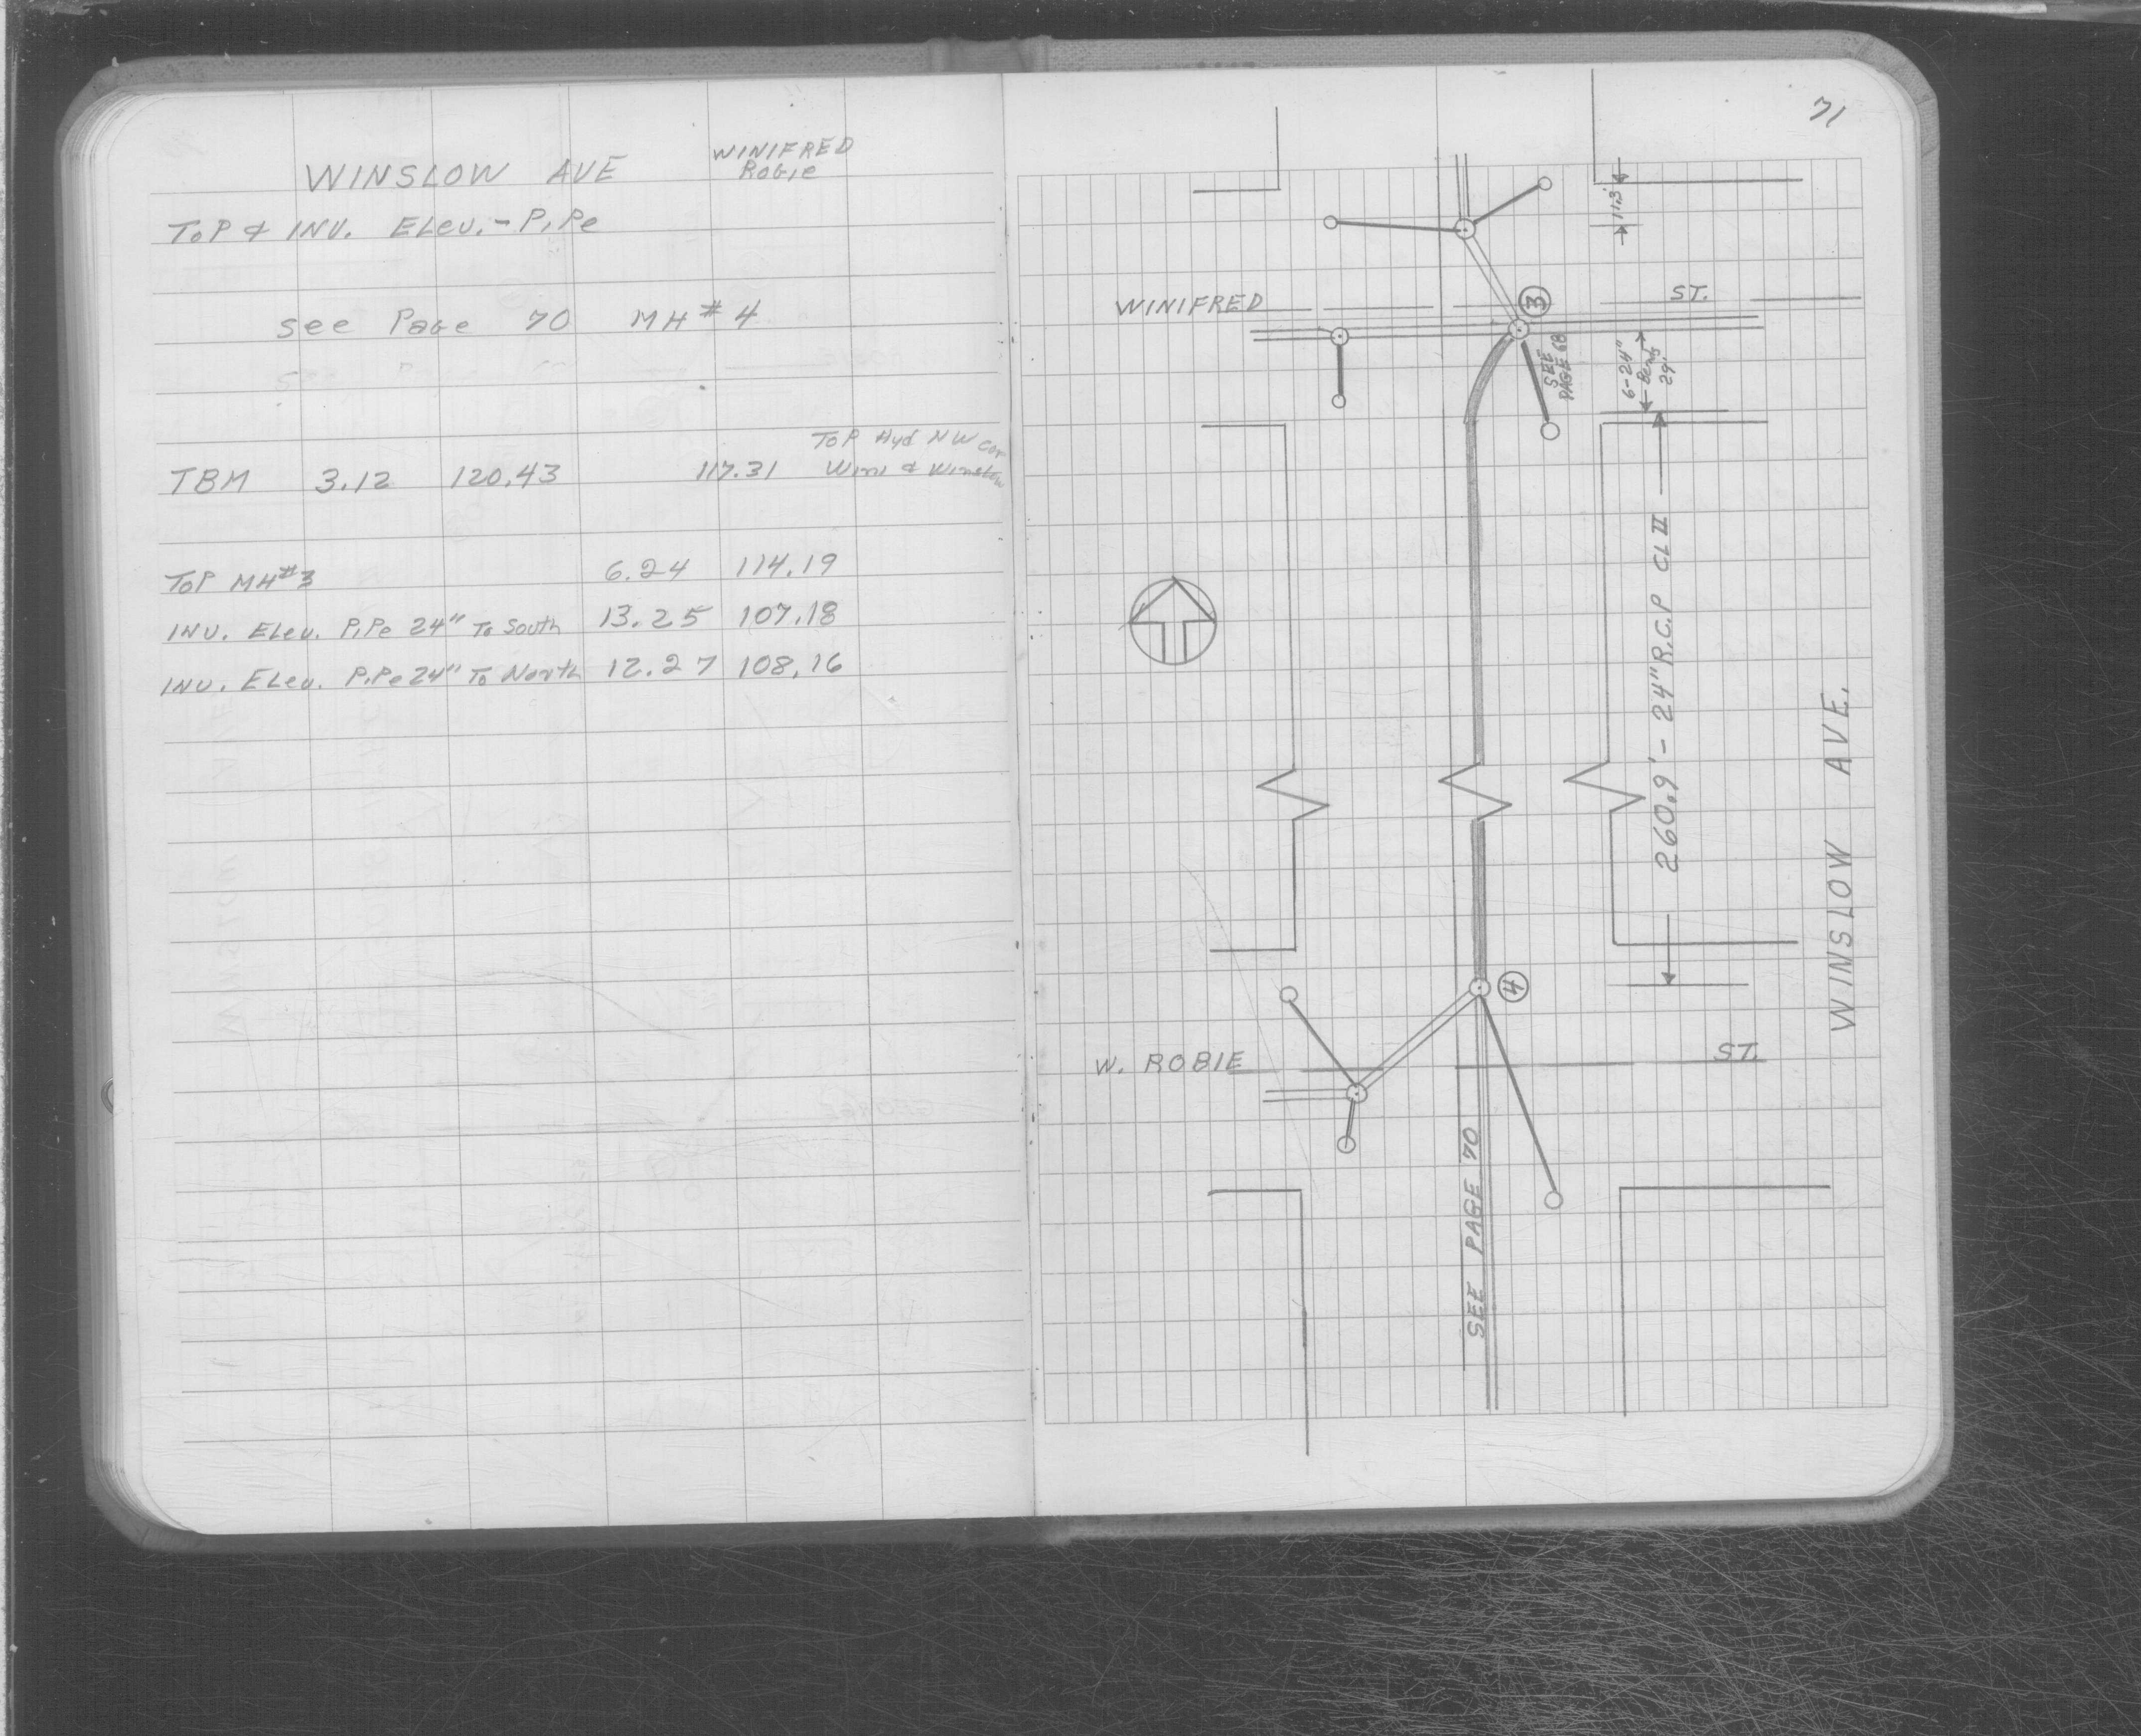 WINSLOW AVE
WINIFRED
Robie
ToP & INV. Elev. - PiPe
see Page 70 MH #4
ToP Hyd NW Cor
TBM 3.12 120.43 117.31 Wini & Winslow
ToP MH #3 6.24 114.19
INV. Elev. PiPe 24" To South 13.25 107.18
INV. Elev. PiPe 24" To North 12.27 108.16
71
11.3'
WINIFRED ST.
3
SEE
PAGE 68
6-24"
Bends
29'
260.9' - 24" R.C.P CL II
WINSLOW AVE.
4
W. ROBIE ST.
SEE PAGE 70